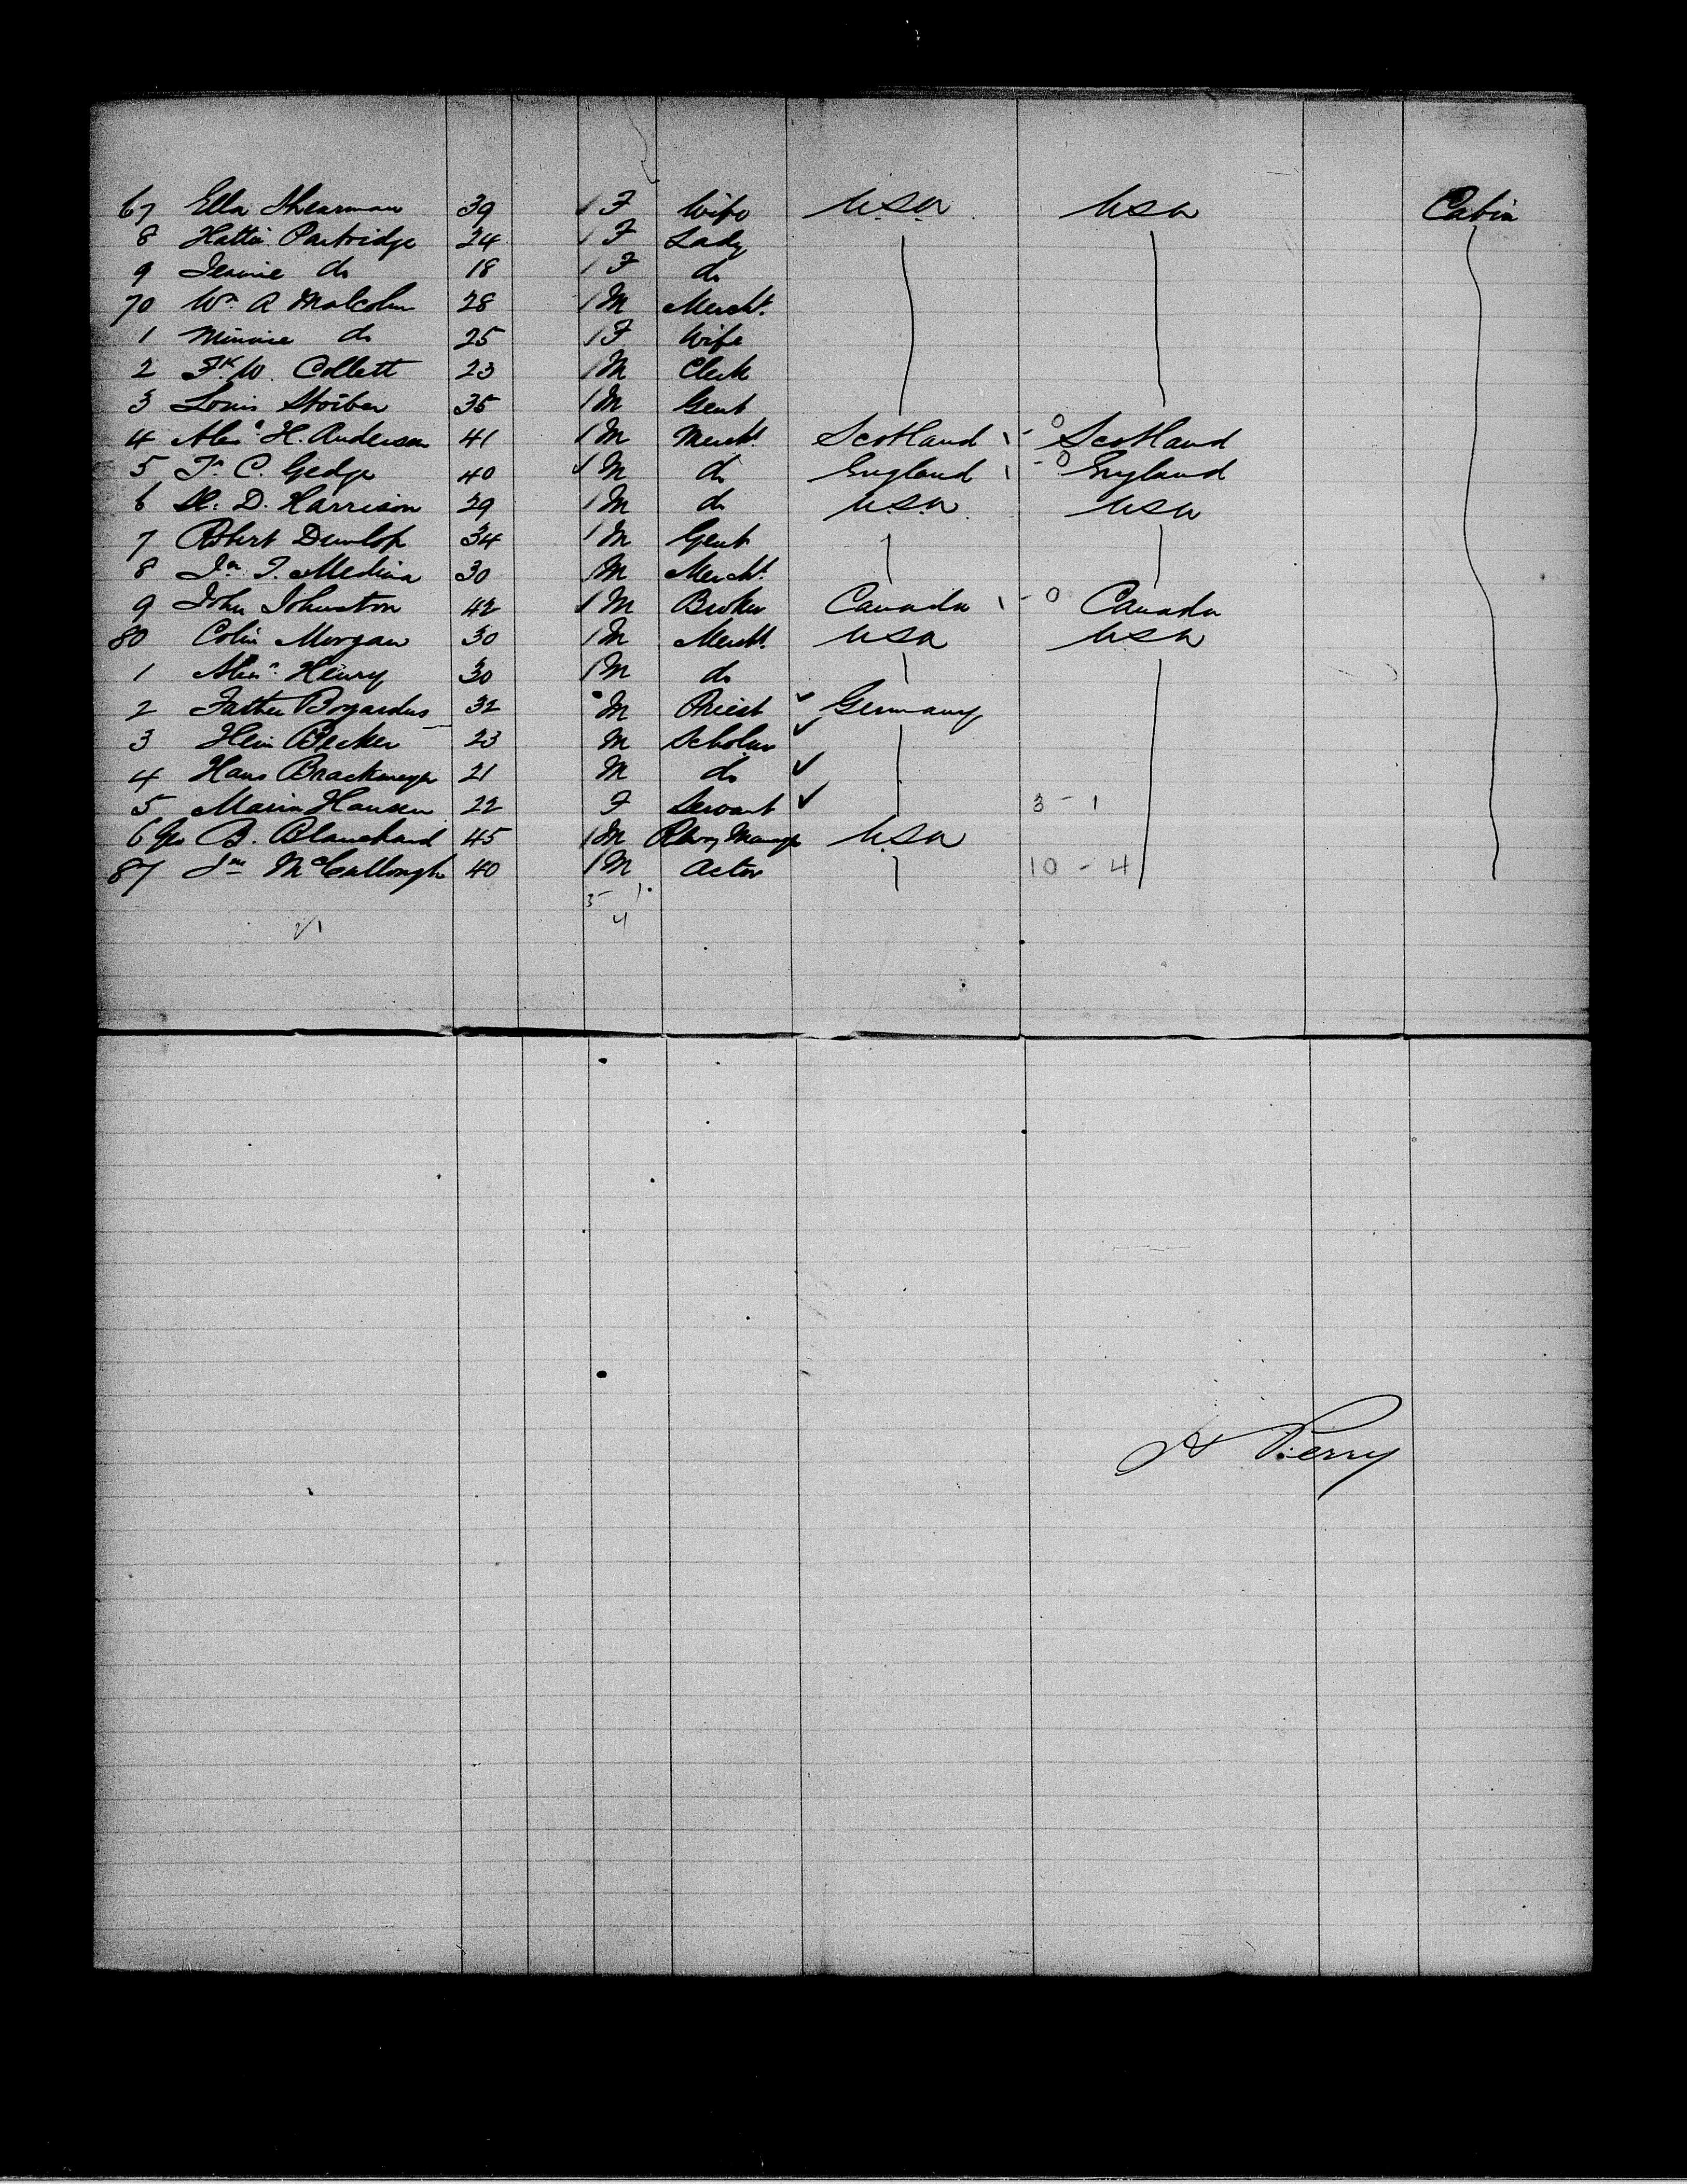 67 Ella Shearman 39 1 F Wife U.S.A. USA Cabin
8 Hattie Partridge 24 1 F Lady
9 Jennie do 18 1 F do
70 Wm A Malcolm 28 1 M Mercht.
1 Minnie do 25 1 F Wife
2 Fk. W. Collett 23 1 M Clerk
3 Louis Stoiber 35 1 M Gent
4 Alexr H. Anderson 41 1 M Mercht Scotland \ - 0 Scotland
5 C. Gedge 40 1 M do England \ - 0 England
6 D. Harrison 29 1 M do U.S.A. USA
7 Robert Dunlop 34 1 M Gent
8 T. Medina 30 1 M Mercht.
9 John Johnston 42 1 M Broker Canada \ - 0 Canada
80 Colin Morgan 30 1 M Mercht. USA USA
1 Alexr Henry 30 1 M do
2 Father Bogardus 32 M Priest ✓ Germany
3 Hein Becker 23 M Scholar ✓
4 Hans Brackmeyer 21 M do ✓
5 Maria Hansen 22 F Servant ✓ 3 - 1
6 Geo B. Blanchard 45 1 M Manager U.S.A
87 Jno McCullough 40 1 M Actor 10 - 4
4
H Perry